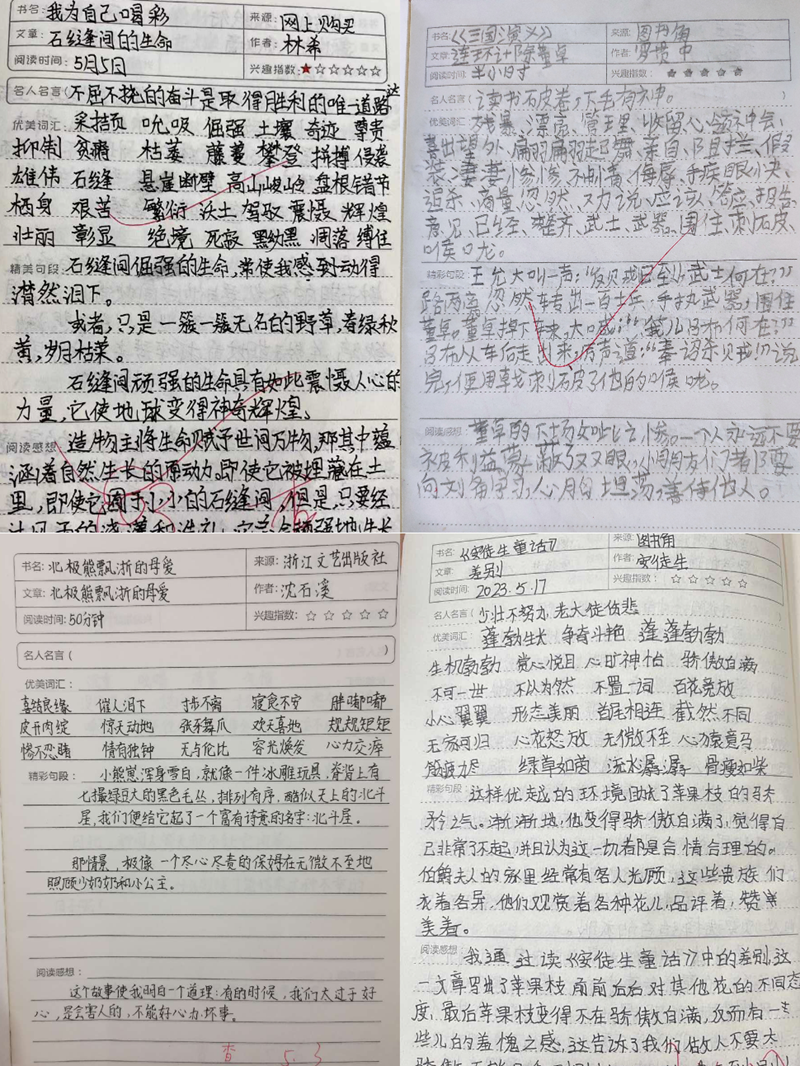 书名：我为自己喝彩
来源：网上购买
文章：石缝间的生命
作者：林希
阅读时间：5月5日
兴趣指数：★☆☆☆☆☆
名人名言（不屈不挠的奋斗是取得胜利的唯一道路）
优美词汇：采撷 吮吸 倔强 土壤 奇迹 尊贵
抑制 贫瘠 枯萎 藤蔓 攀登 拼搏 侵袭
雄伟 石缝 悬崖断壁 高山峻岭 盘根错节
栖身 艰苦 繁衍 沃土 驾驭 震慑 辉煌
壮丽 彰显 绝境 死寂 黝黑 凋落 缚住
精美句段：石缝间倔强的生命，常使我感到动得
潸然泪下。
或者，只是一簇一簇无名的野草，春绿秋
黄，岁月枯荣。
石缝间顽强的生命具有如此震慑人心的
力量，它使地球变得神奇辉煌。
阅读感想：造物主将生命赋予世间万物，那其中蕴
涵着自然生长的原动力。即使它被埋藏在土
里，即使它囿于小小的石缝间，但是，只要经
书名：《三国演义》
来源：图书角
文章：连环计除董卓
作者：罗贯中
阅读时间：半小时
兴趣指数：★★★★★
名人名言（读书破万卷，下笔有神。
优美词汇：残暴、漂亮、管理、收留、心领神会、
喜出望外、翩翩起舞、亲自、阻拦、假
装、凄凄惨惨、不耐烦、侮辱、手疾眼快、
追杀、商量、忽然、对说、应该、答应、报告、
意见、已至、整齐、武士、武器、围住、刺破、
喉咙
精彩句段：王允大叫一声："反贼已到，武士何在？"
路两旁忽然转出一百士兵，手执武器，围住
董卓。董卓掉下车来，大喊："我儿吕布何在？"
吕布从车后走出来，厉声道："奉诏杀贼！"说
完，便用戟刺破了他的喉咙。
阅读感想：董卓的下场如此之惨。一个人永远不要
被利益蒙蔽了双眼，小朋友们都要
向刘备学习，心胸坦荡，善待他人。
书名：北极熊飘浙的母爱
来源：浙江文艺出版社
文章：北极熊飘浙的母爱
作者：沈石溪
阅读时间：50分钟
兴趣指数：☆☆☆☆☆
名人名言（ ）
优美词汇：
喜结良缘 催人泪下 寸步不离 寝食不安 胖嘟嘟
皮开肉绽 惊天动地 张牙舞爪 欢天喜地 规规矩矩
惨不忍睹 情有独钟 无与伦比 容光焕发 心力交瘁
精彩句段：小熊崽浑身雪白，就像一件冰雕玩具，脊背上有
七撮绿豆大的黑色毛丛，排列有序，酷似天上的北斗
星，我们便给它起了一个富有诗意的名字：北斗星。
那情景，极像一个尽心尽责的保姆在无微不至地
照顾少奶奶和小公主。
阅读感想：
这个故事使我明白一个道理：有的时候，我们太过于好
心，是会害人的，不能好心办坏事。
查 5.3
书名：《安徒生童话》
来源：图书角
文章：差别
作者：安徒生
阅读时间：2023.5.17
兴趣指数：☆☆☆☆☆
名人名言（少壮不努力，老大徒伤悲
优美词汇：蓬勃生长 争奇斗艳 蓬蓬勃勃
生机勃勃 赏心悦目 心旷神怡 骄傲自满
不可一世 不以为然 不置一词 百花竞放
小心翼翼 形态美丽 首尾相连 截然不同
无家可归 心花怒放 无微不至 心猿意马
筋疲力尽 绿草如茵 流水潺潺 骨瘦如柴
精彩句段：这样优越的环境助长了苹果枝的骄
矜之气。渐渐地，他变得骄傲自满了，觉得自
己非常了不起，并且认为这一切都是合情合理的。
伯爵夫人的家里经常有客人光顾，这些贵族们
衣着各异，他们观赏着各种花儿，品评着，赞
美着。
阅读感想：我通过读《安徒生童话》中的差别，这
一文章写出了苹果枝前前后后对其他花的不同态
度，最后苹果枝变得不在骄傲自满，反而有一
些儿的羞愧之感，这告诉了我们做人不要太